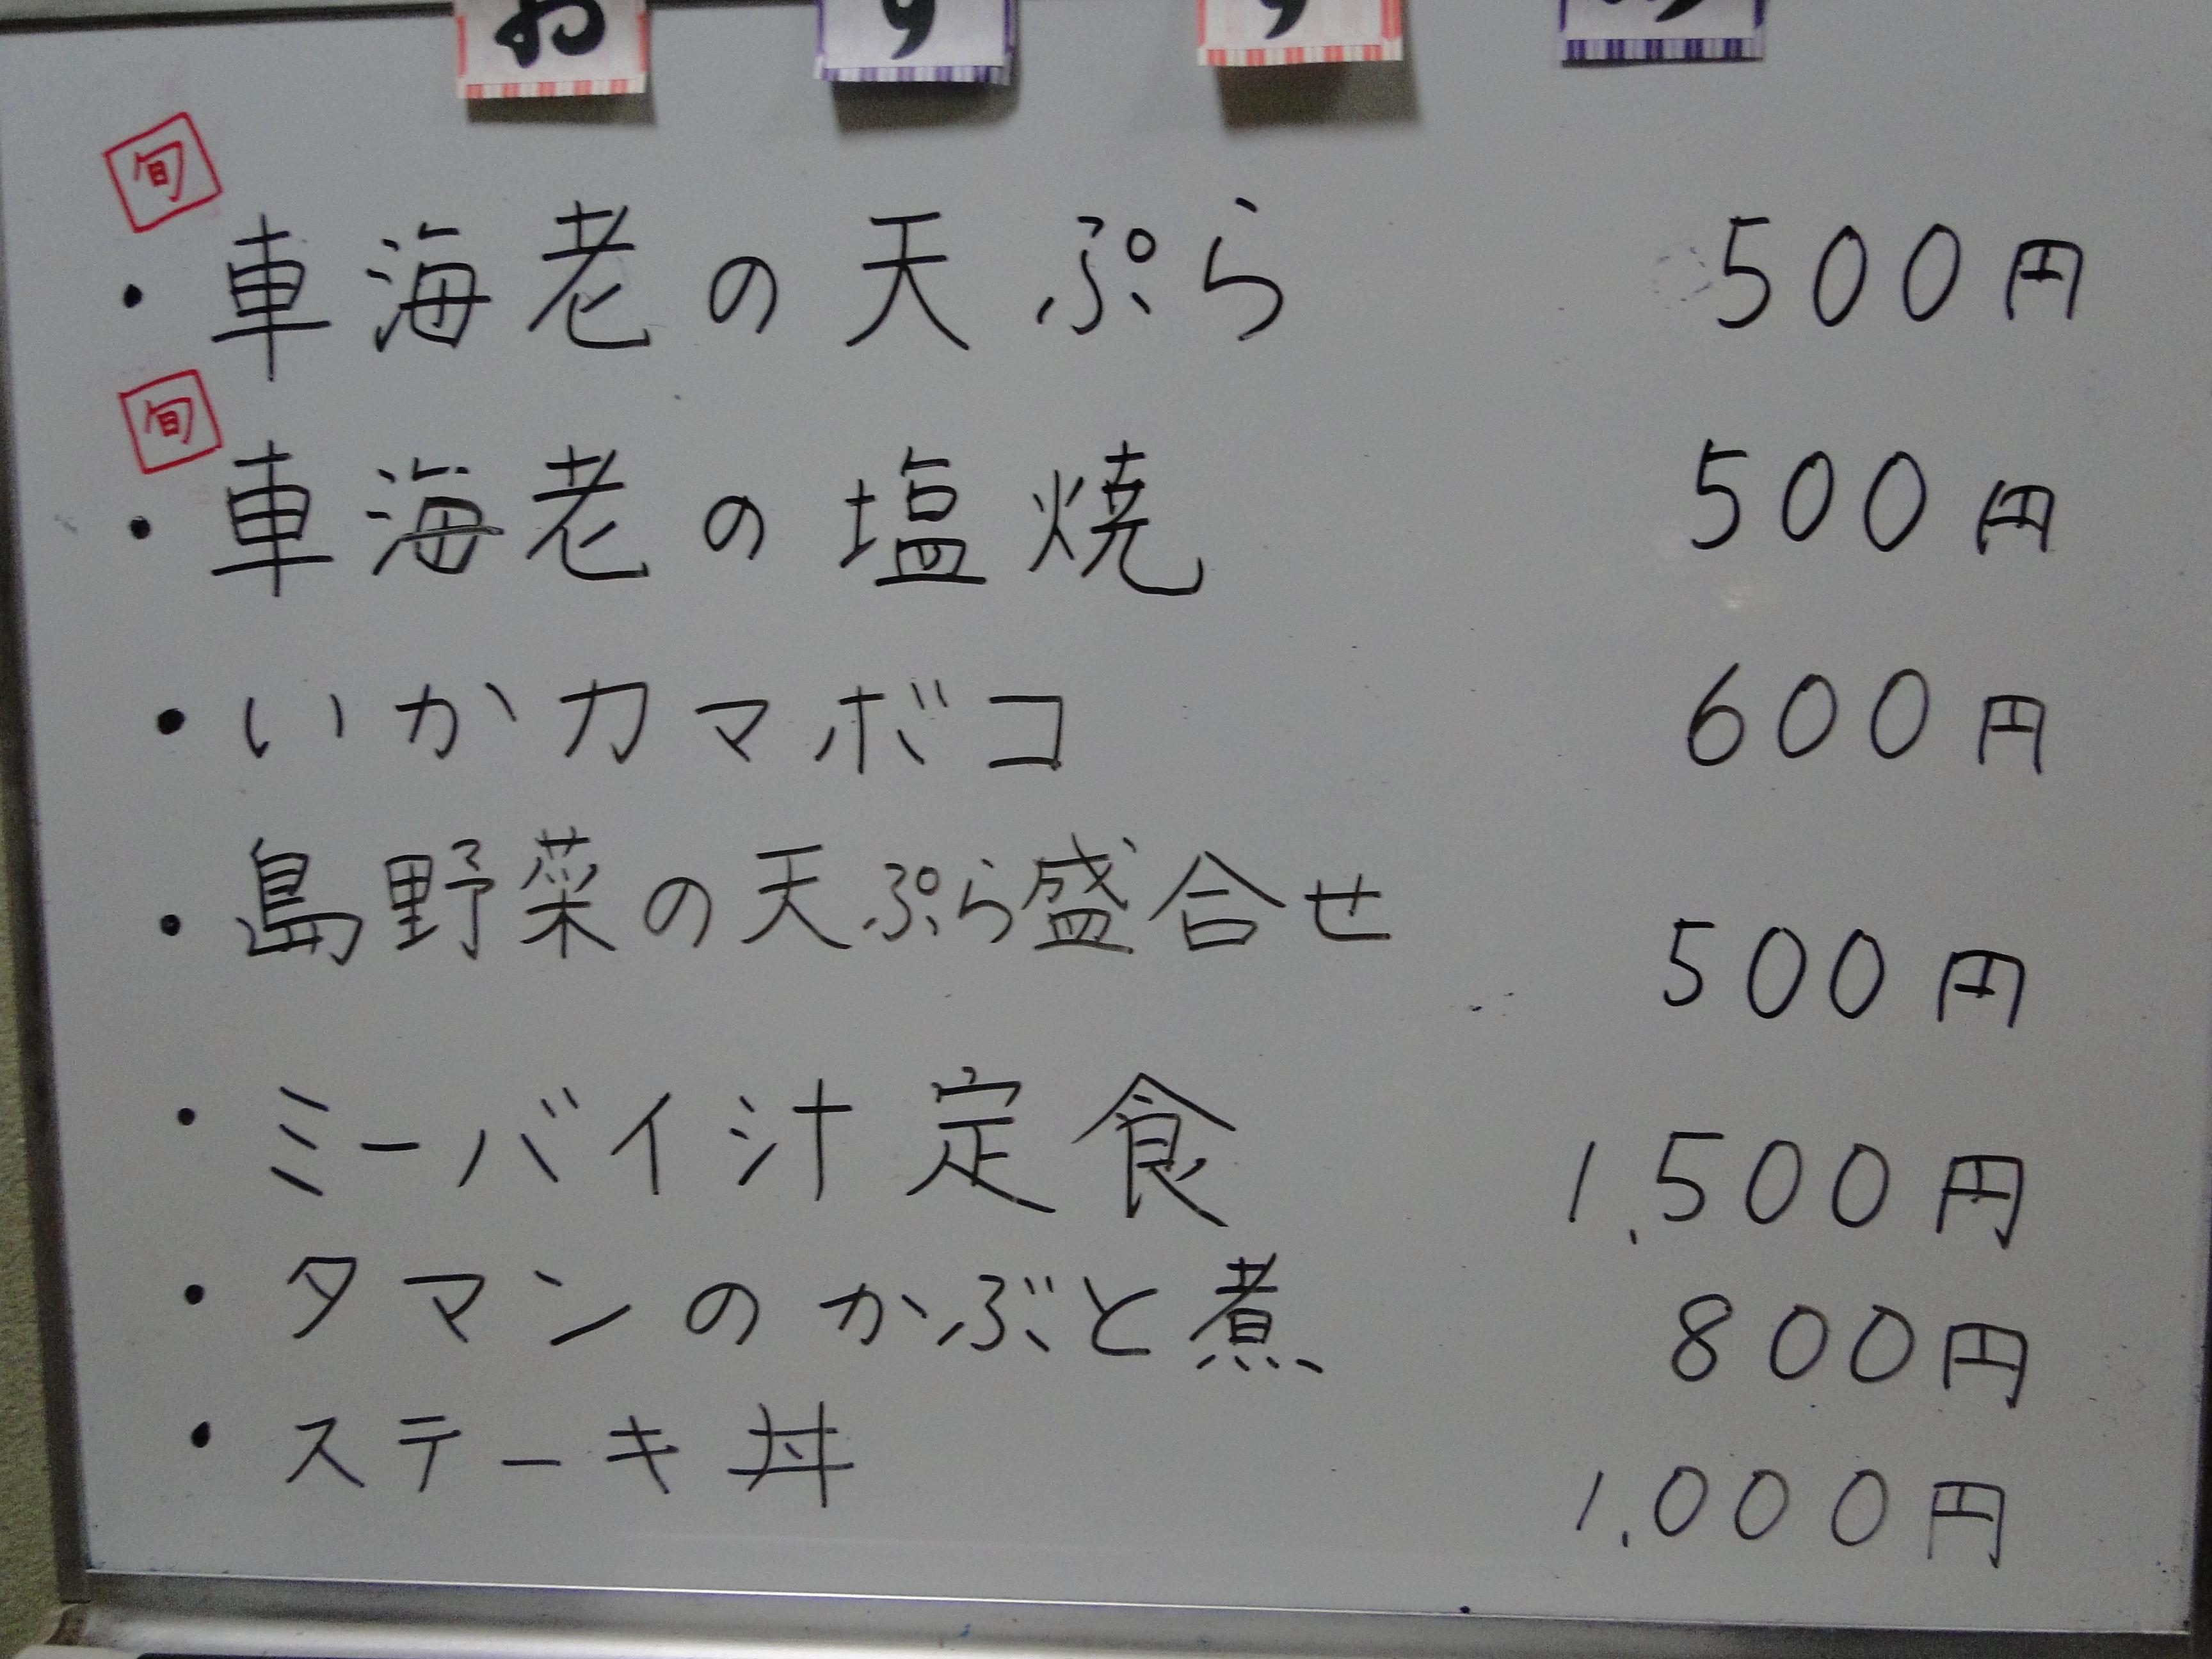 おすすめ
旬
・車海老の天ぷら 500円
旬
・車海老の塩焼 500円
・いかカマボコ 600円
・島野菜の天ぷら盛合せ 500円
・ミーバイ汁定食 1,500円
・タマンのかぶと煮 800円
・ステーキ丼 1,000円